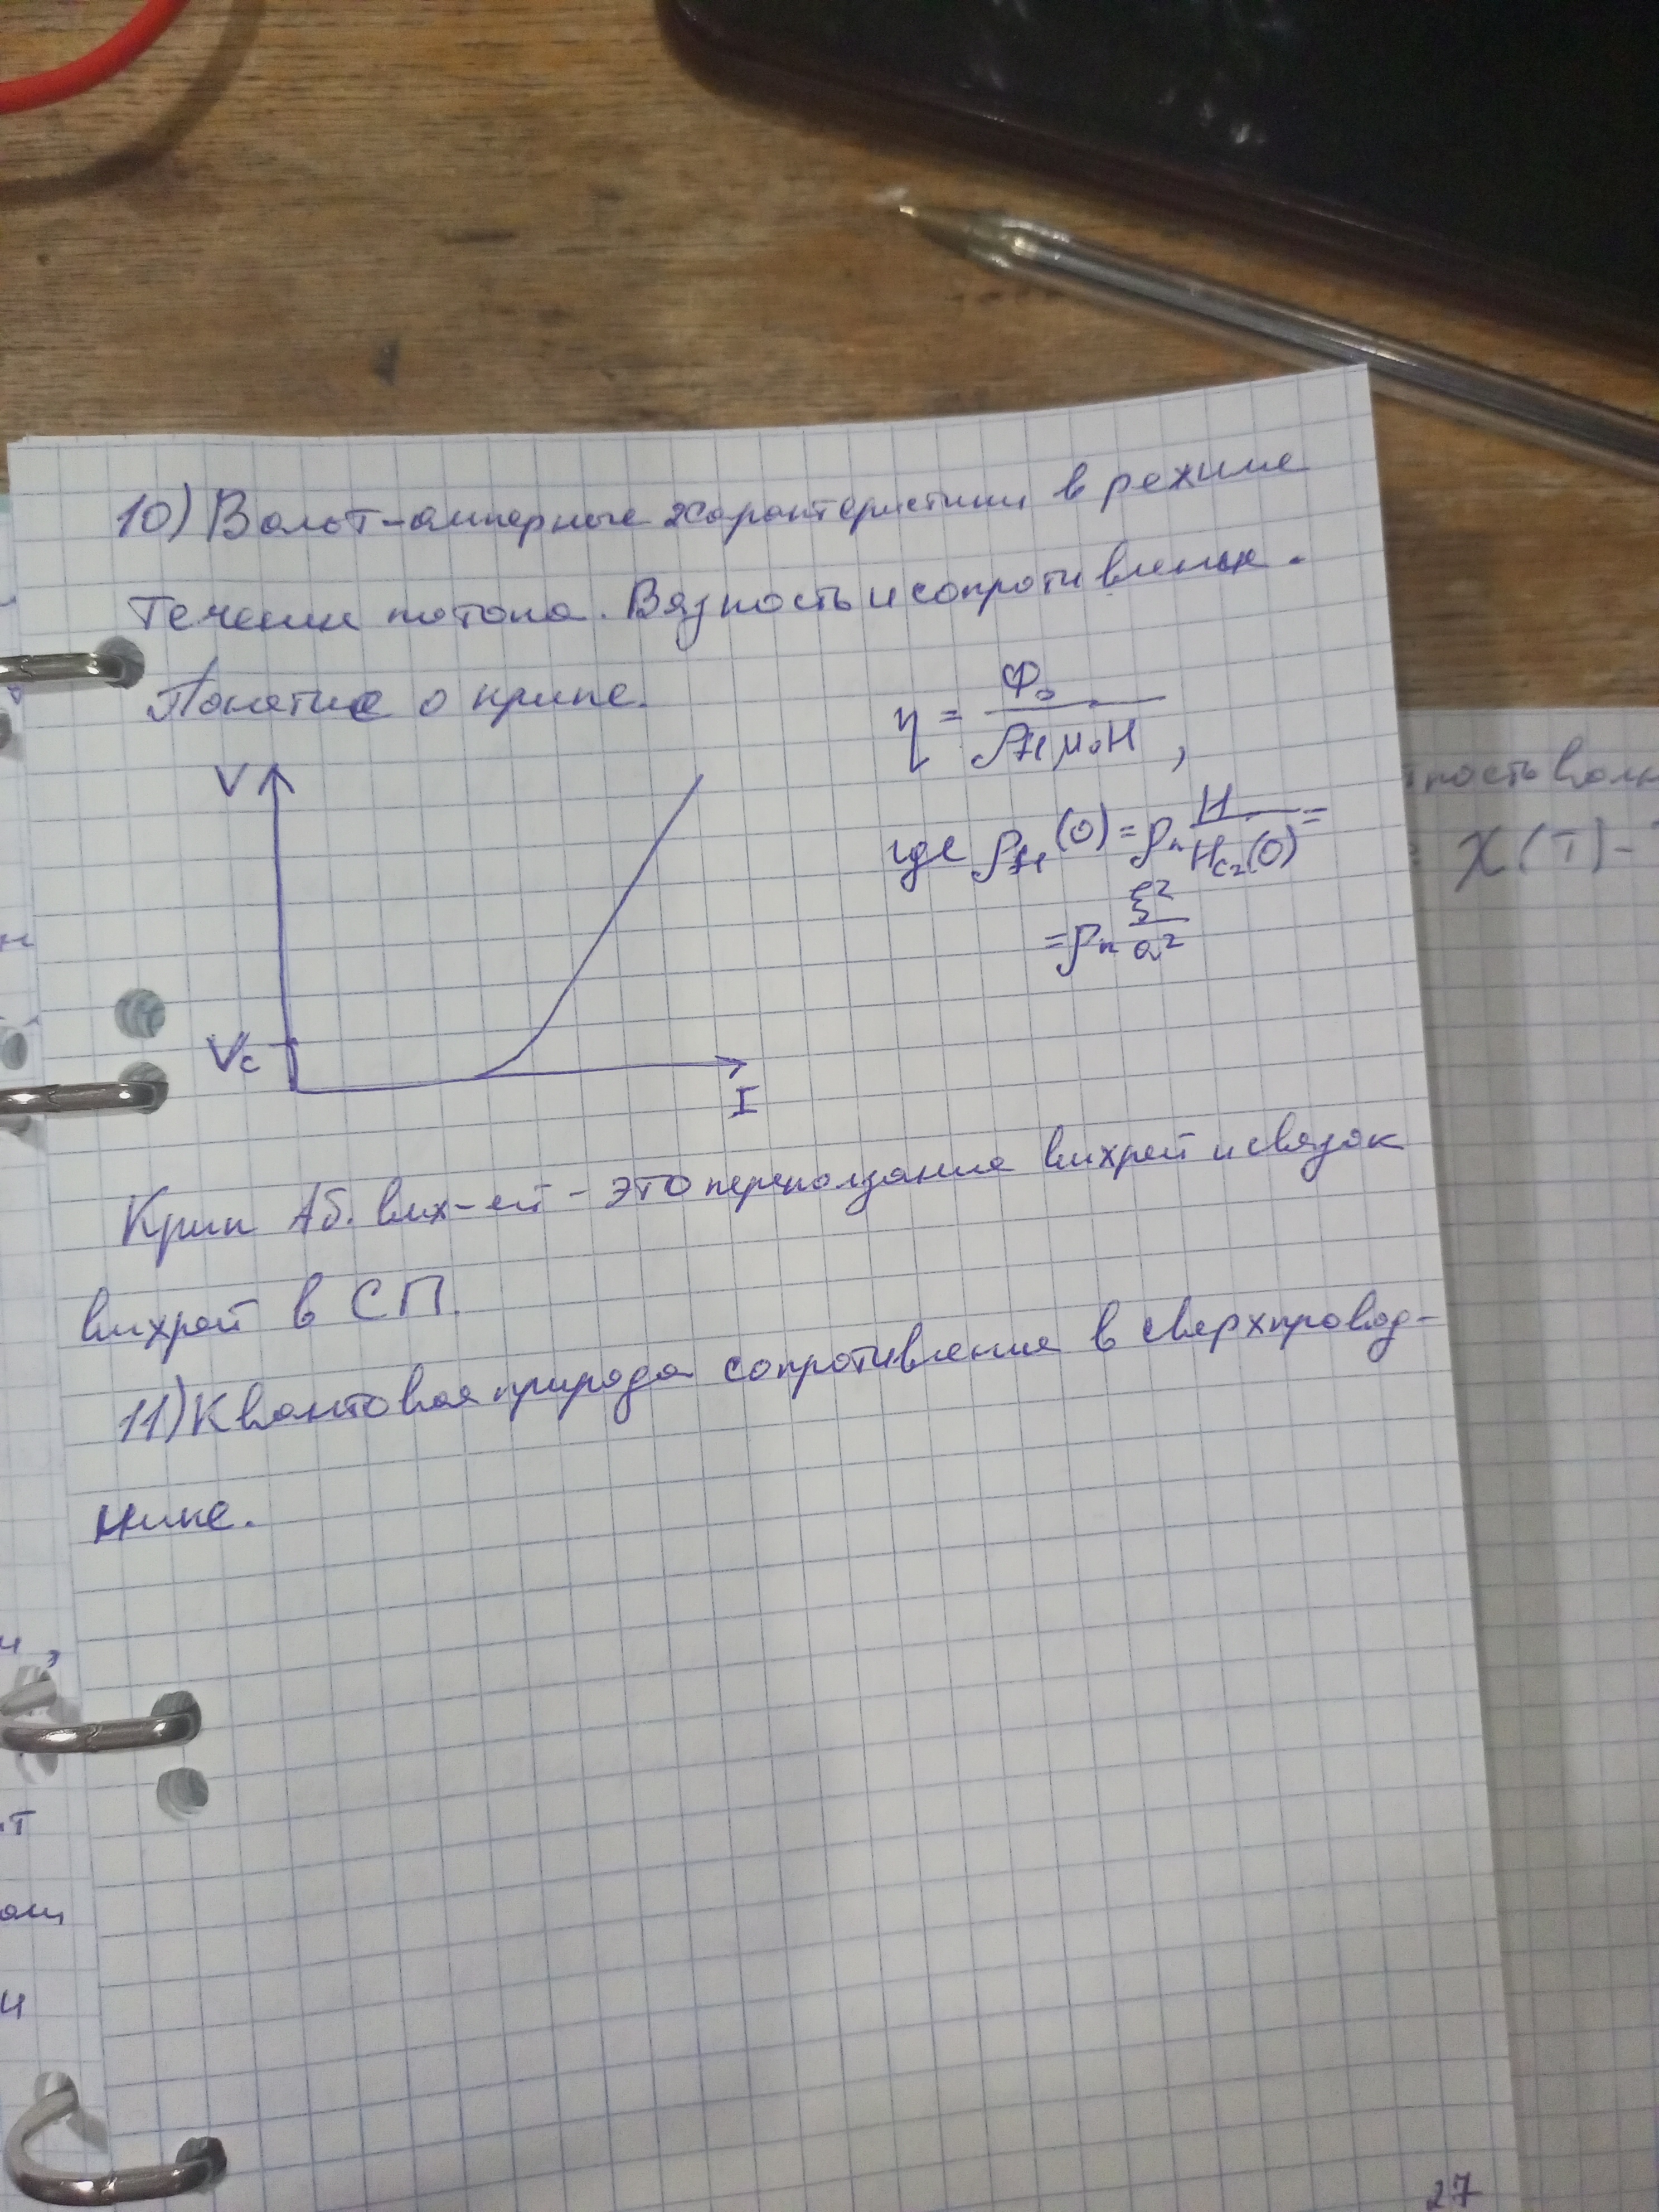 10) Вольт-амперные характеристики в режиме
течении потока. Вязкость и сопротивление.
Понятие о крипе.
η = Φ₀ / ρff μ₀H ,
где ρff(0) = ρn H / Hc₂(0) =
= ρn ξ² / a²
V
Vc
I
Крип Аб. вих-ей - это переползание вихрей и связок
вихрей в СП.
11) Квантовая природа сопротивления в сверхпровод-
нике.
27
χ(T) -